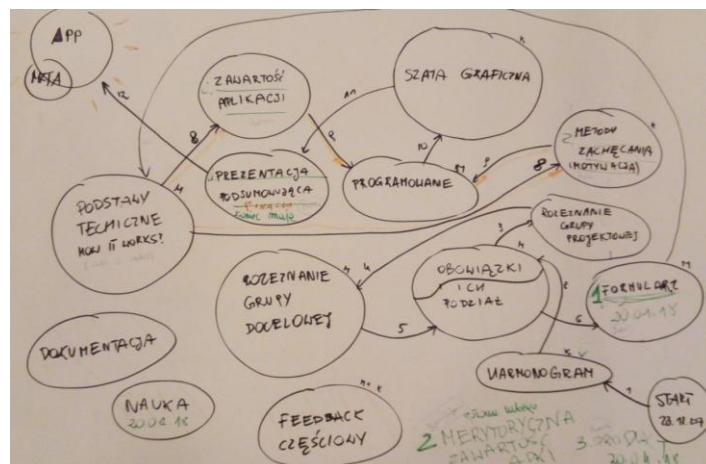 APP
META
12
8
ZAWARTOŚĆ
APLIKACJI
11
SZATA GRAFICZNA
9
10
PREZENTACJA
PODSUMOWUJĄCA
PROGRAMOWANIE
9
8
2 METODY
ZACHĘCANIA
(MOTYWACJA)
PODSTAWY
TECHNICZNE
HOW IT WORKS?
ROZEZNANIE
GRUPY
PROJEKTOWEJ
3
4
ROZEZNANIE
GRUPY
DOCELOWEJ
5
OBOWIĄZKI
I ICH
PODZIAŁ
6
1 FORMULARZ
20.04.18
DOKUMENTACJA
HARMONOGRAM
1
START
NAUKA
20.04.18
FEEDBACK
CZĘŚCIOWY
2 MERYTORYCZNA
ZAWARTOŚĆ
3.
20.04.18